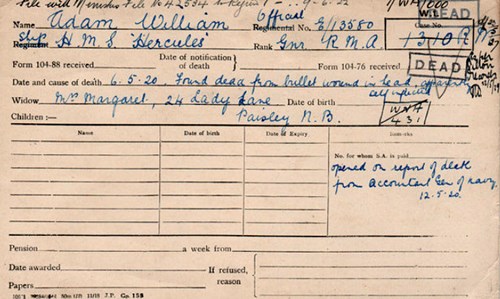 File with Minutes File No
Name Adam William Official Regimental No. E/13580
DEAD
Ship H.M.S. "Hercules" Rank Gnr. R.M.A. 1310 R
Regiment
Form 104-88 received Date of notification of death Form 104-76 received DEAD
Date and cause of death 6.5.20 Found dead from bullet wound in head, apparently self inflicted
Widow Mrs Margaret, 24 Lady Lane Date of birth
Children:— Paisley N.B. 431
Name Date of birth Date of Expiry Remarks
No. for whom S.A. is paid
opened on report of death
from Accountant Gen of navy
12.5.20.
Pension a week from
Date awarded If refused, reason
Papers